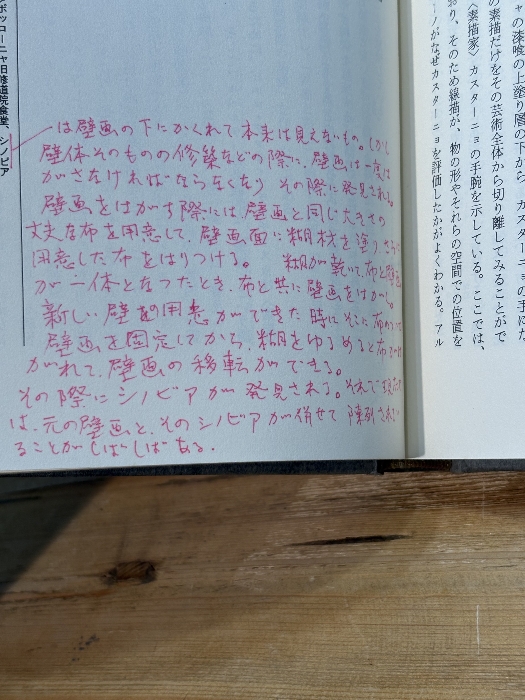 ャの漆喰の上塗り層の下から、カスターニョの手にな
の素描だけをその芸術全体から切り離してみることがで
〈素描家〉カスターニョの手腕を示している。ここでは、
おり、そのため線描が、物の形やそれらの空間での位置を
ノがなぜカスターニョを評価したかがよくわかる。アル
ポッローニャ旧修道院食堂、シノピア
は壁画の下にかくれて本来は見えないもの。しかし
壁体そのものの修築などの際に、壁画は一度は
がさなければならなくなり その際に発見される。
壁画をはがす際には、壁画と同じ大きさの
丈夫な布を用意して、壁画面に糊材を塗り、さらに
用意した布をはりつける。 糊が乾いて、布と壁画
が一体となったとき、布と共に壁画をはがす。
新しい壁を用意ができた時にそこに布の
壁画を固定してから、糊をゆるめると布
がれて、壁画の移転ができる。
その際にシノピアが発見される。それで現在で
は、元の壁画と、そのシノピアが併せて陳列されてい
ることがしばしばある。